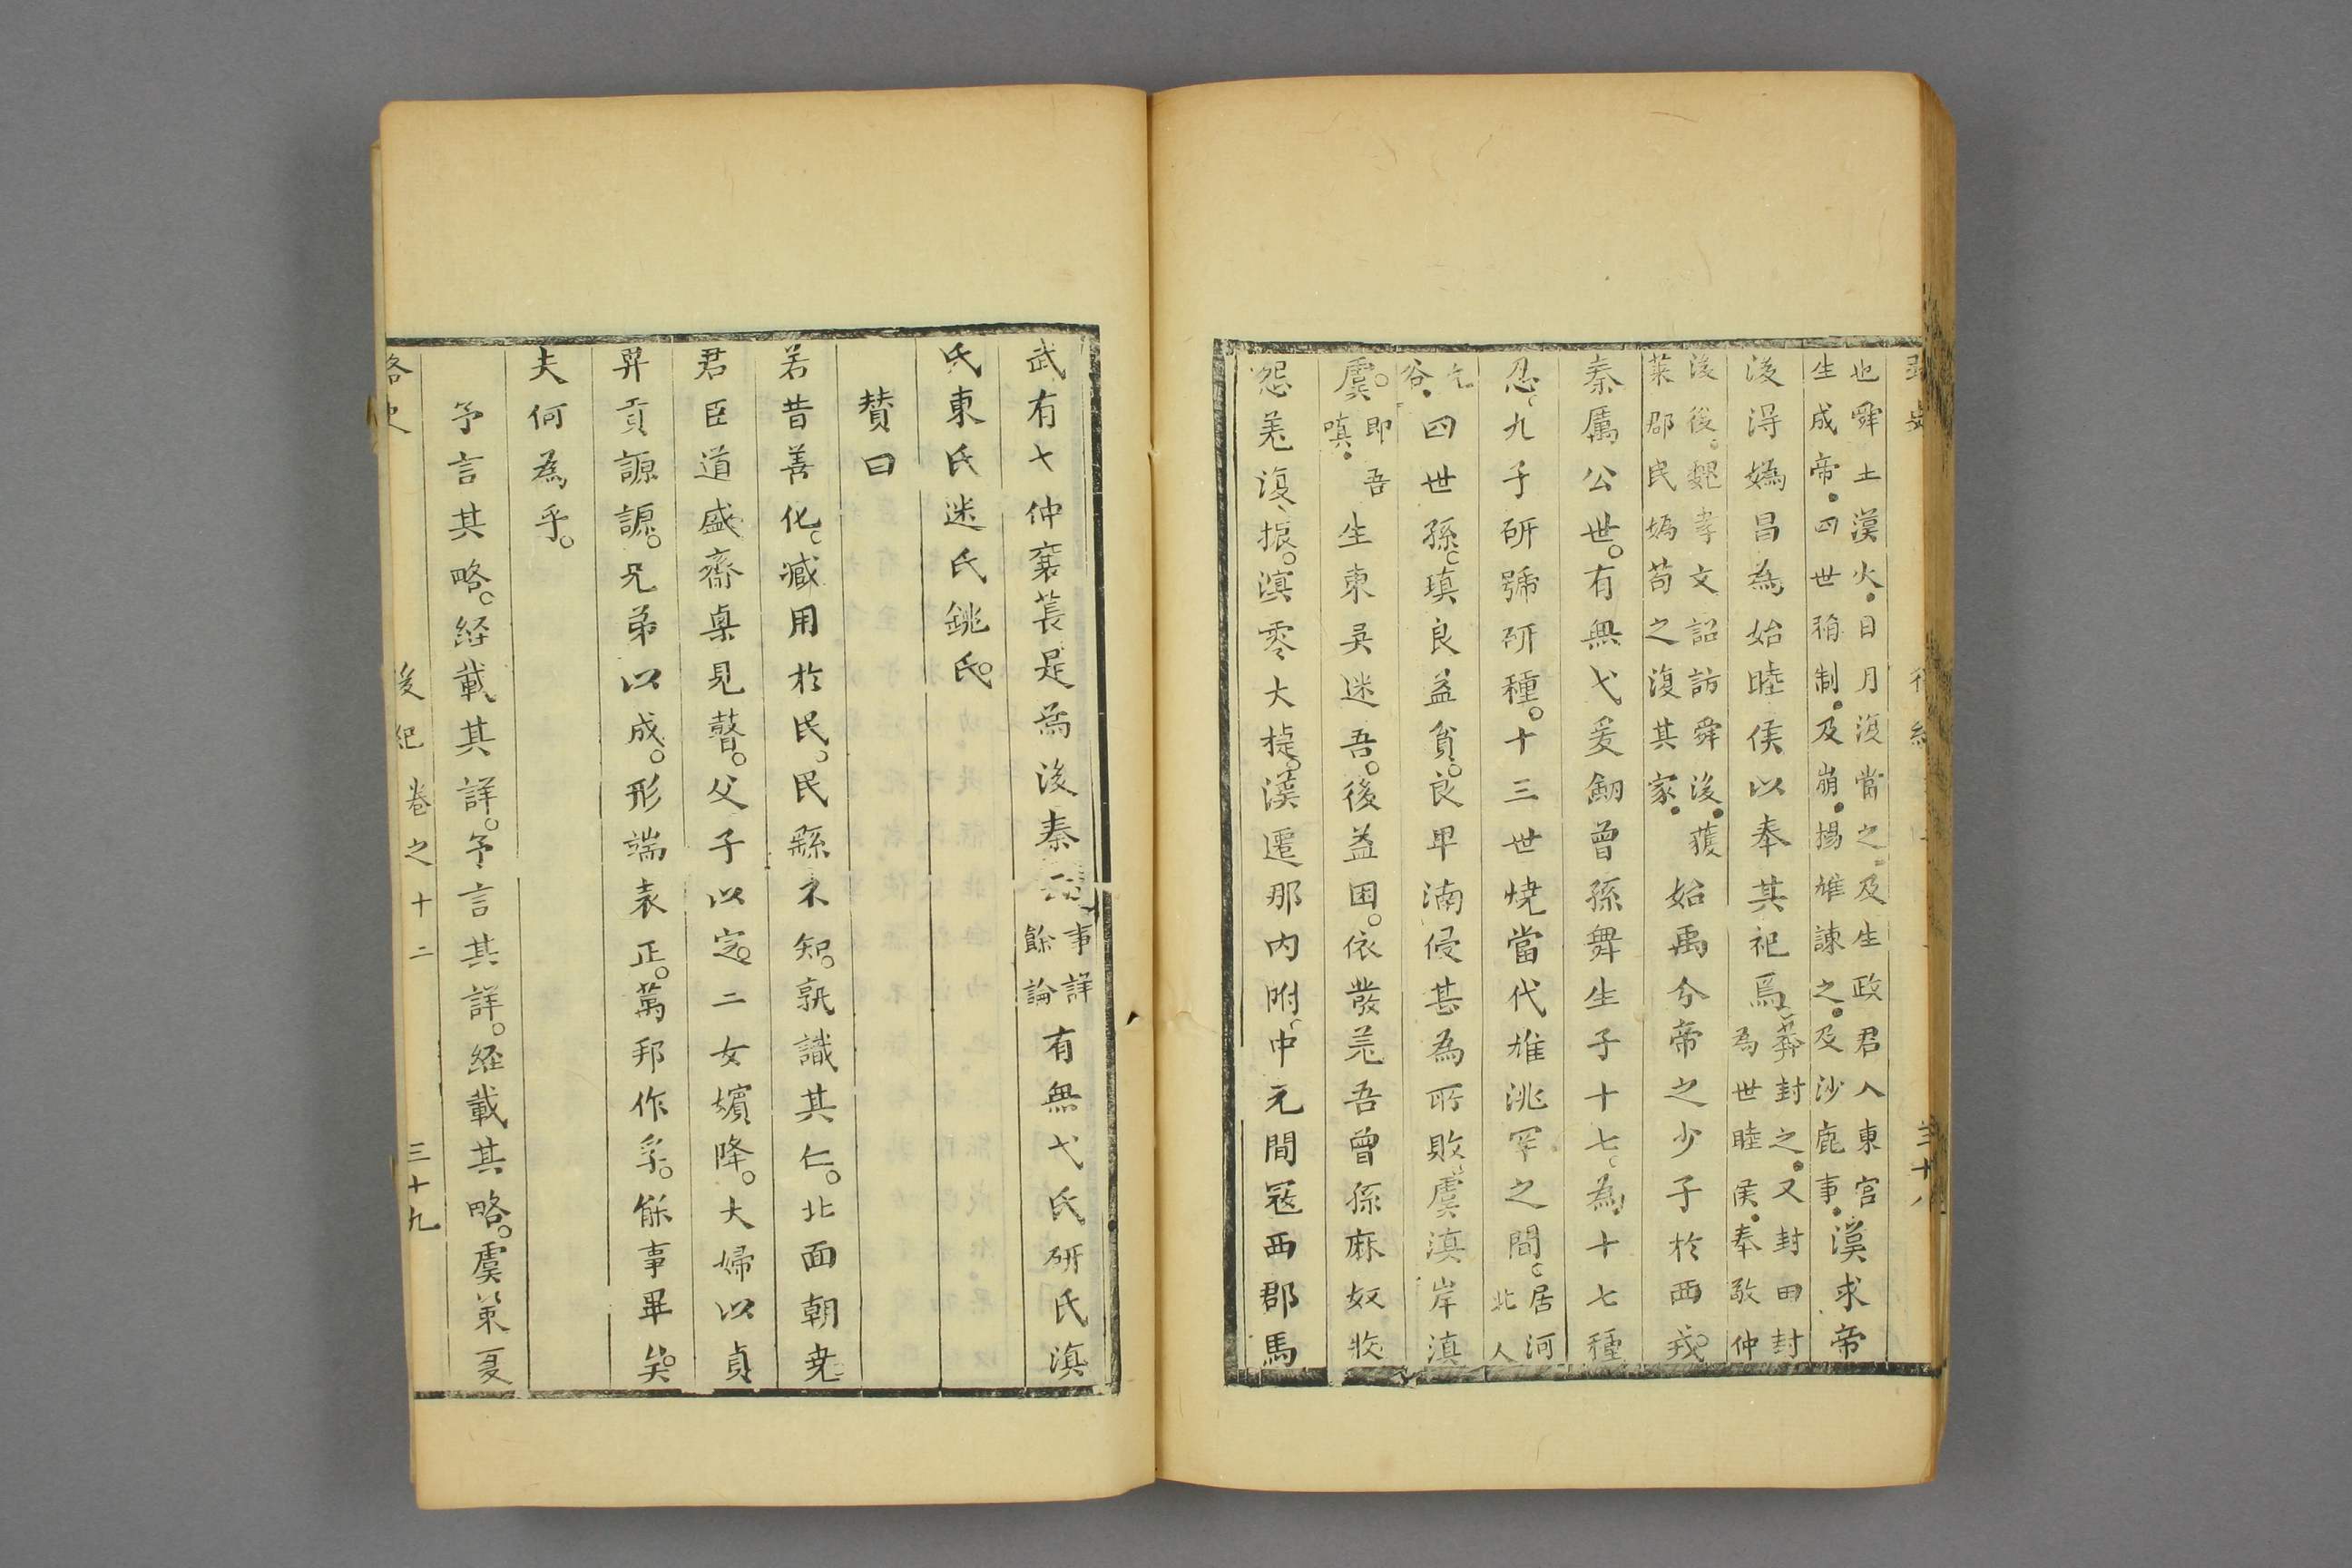 也舜土漢火。日月復當之。及生政君入東宮
生成帝。四世稱制。及崩。揚雄諫之。及沙鹿事。漢求帝
後得媯昌為始睦侯以奉其祀焉。莽封之。又封田封
為世睦侯。奉敬仲
後後。魏孝文詔訪舜後。獲
萊郡民媯苟之復其家。始禹分帝之少子於西戎。
秦厲公世。有無弋爰劒曾孫舞生子十七。為十七種
忍。九子研號研種。十三世燒當代雄洮罕之間。居河
北人
谷。四世孫。瑱良益貧。良卑湳侵甚為所敗。虞滇岸滇
虞。即吾
嗔。生東吳迷吾。後益困。依發羌吾曾孫麻奴牧
怨羌復振。滇零大掟。漢遷那内附。中元間寇西郡馬
三十八
武有七仲襄萇是爲後秦
事詳
餘論
有無弋氏研氏滇
氏東氏迷氏銚氏。
賛曰
若昔善化。減用於民。民繇不知。孰識其仁。北面朝堯
君臣道盛齋㮚見瞽。父子以定。二女嬪降。夫婦以貞
羿貢謜謜。兄弟以成。形端表正。萬邦作孚。能事畢矣。
夫何為乎。
予言其略。経載其詳。予言其詳。経載其略。虞第夏
路史
後紀卷之十二
三十九